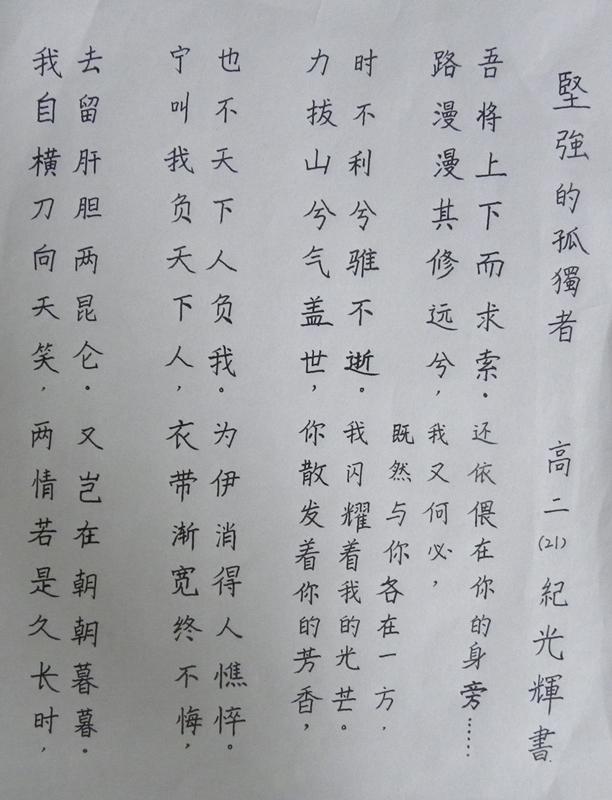 堅強的孤獨者
高二(21)紀光輝書
我自横刀向天笑,
去留肝胆两昆仑。
宁叫我负天下人,
也不天下人负我。
力拔山兮气盖世,
时不利兮骓不逝。
路漫漫其修远兮,
吾将上下而求索。
两情若是久长时,
又岂在朝朝暮暮。
衣带渐宽终不悔,
为伊消得人憔悴。
你散发着你的芳香,
我闪耀着我的光芒。
既然与你各在一方,
我又何必,
还依偎在你的身旁……